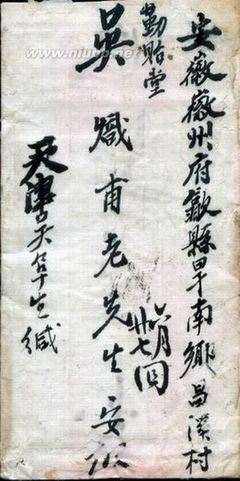 安徽徽州府歙縣旱南鄉昌溪村
勤貽堂
吳熾甫老先生安
六月
廿七回
天津天生緘